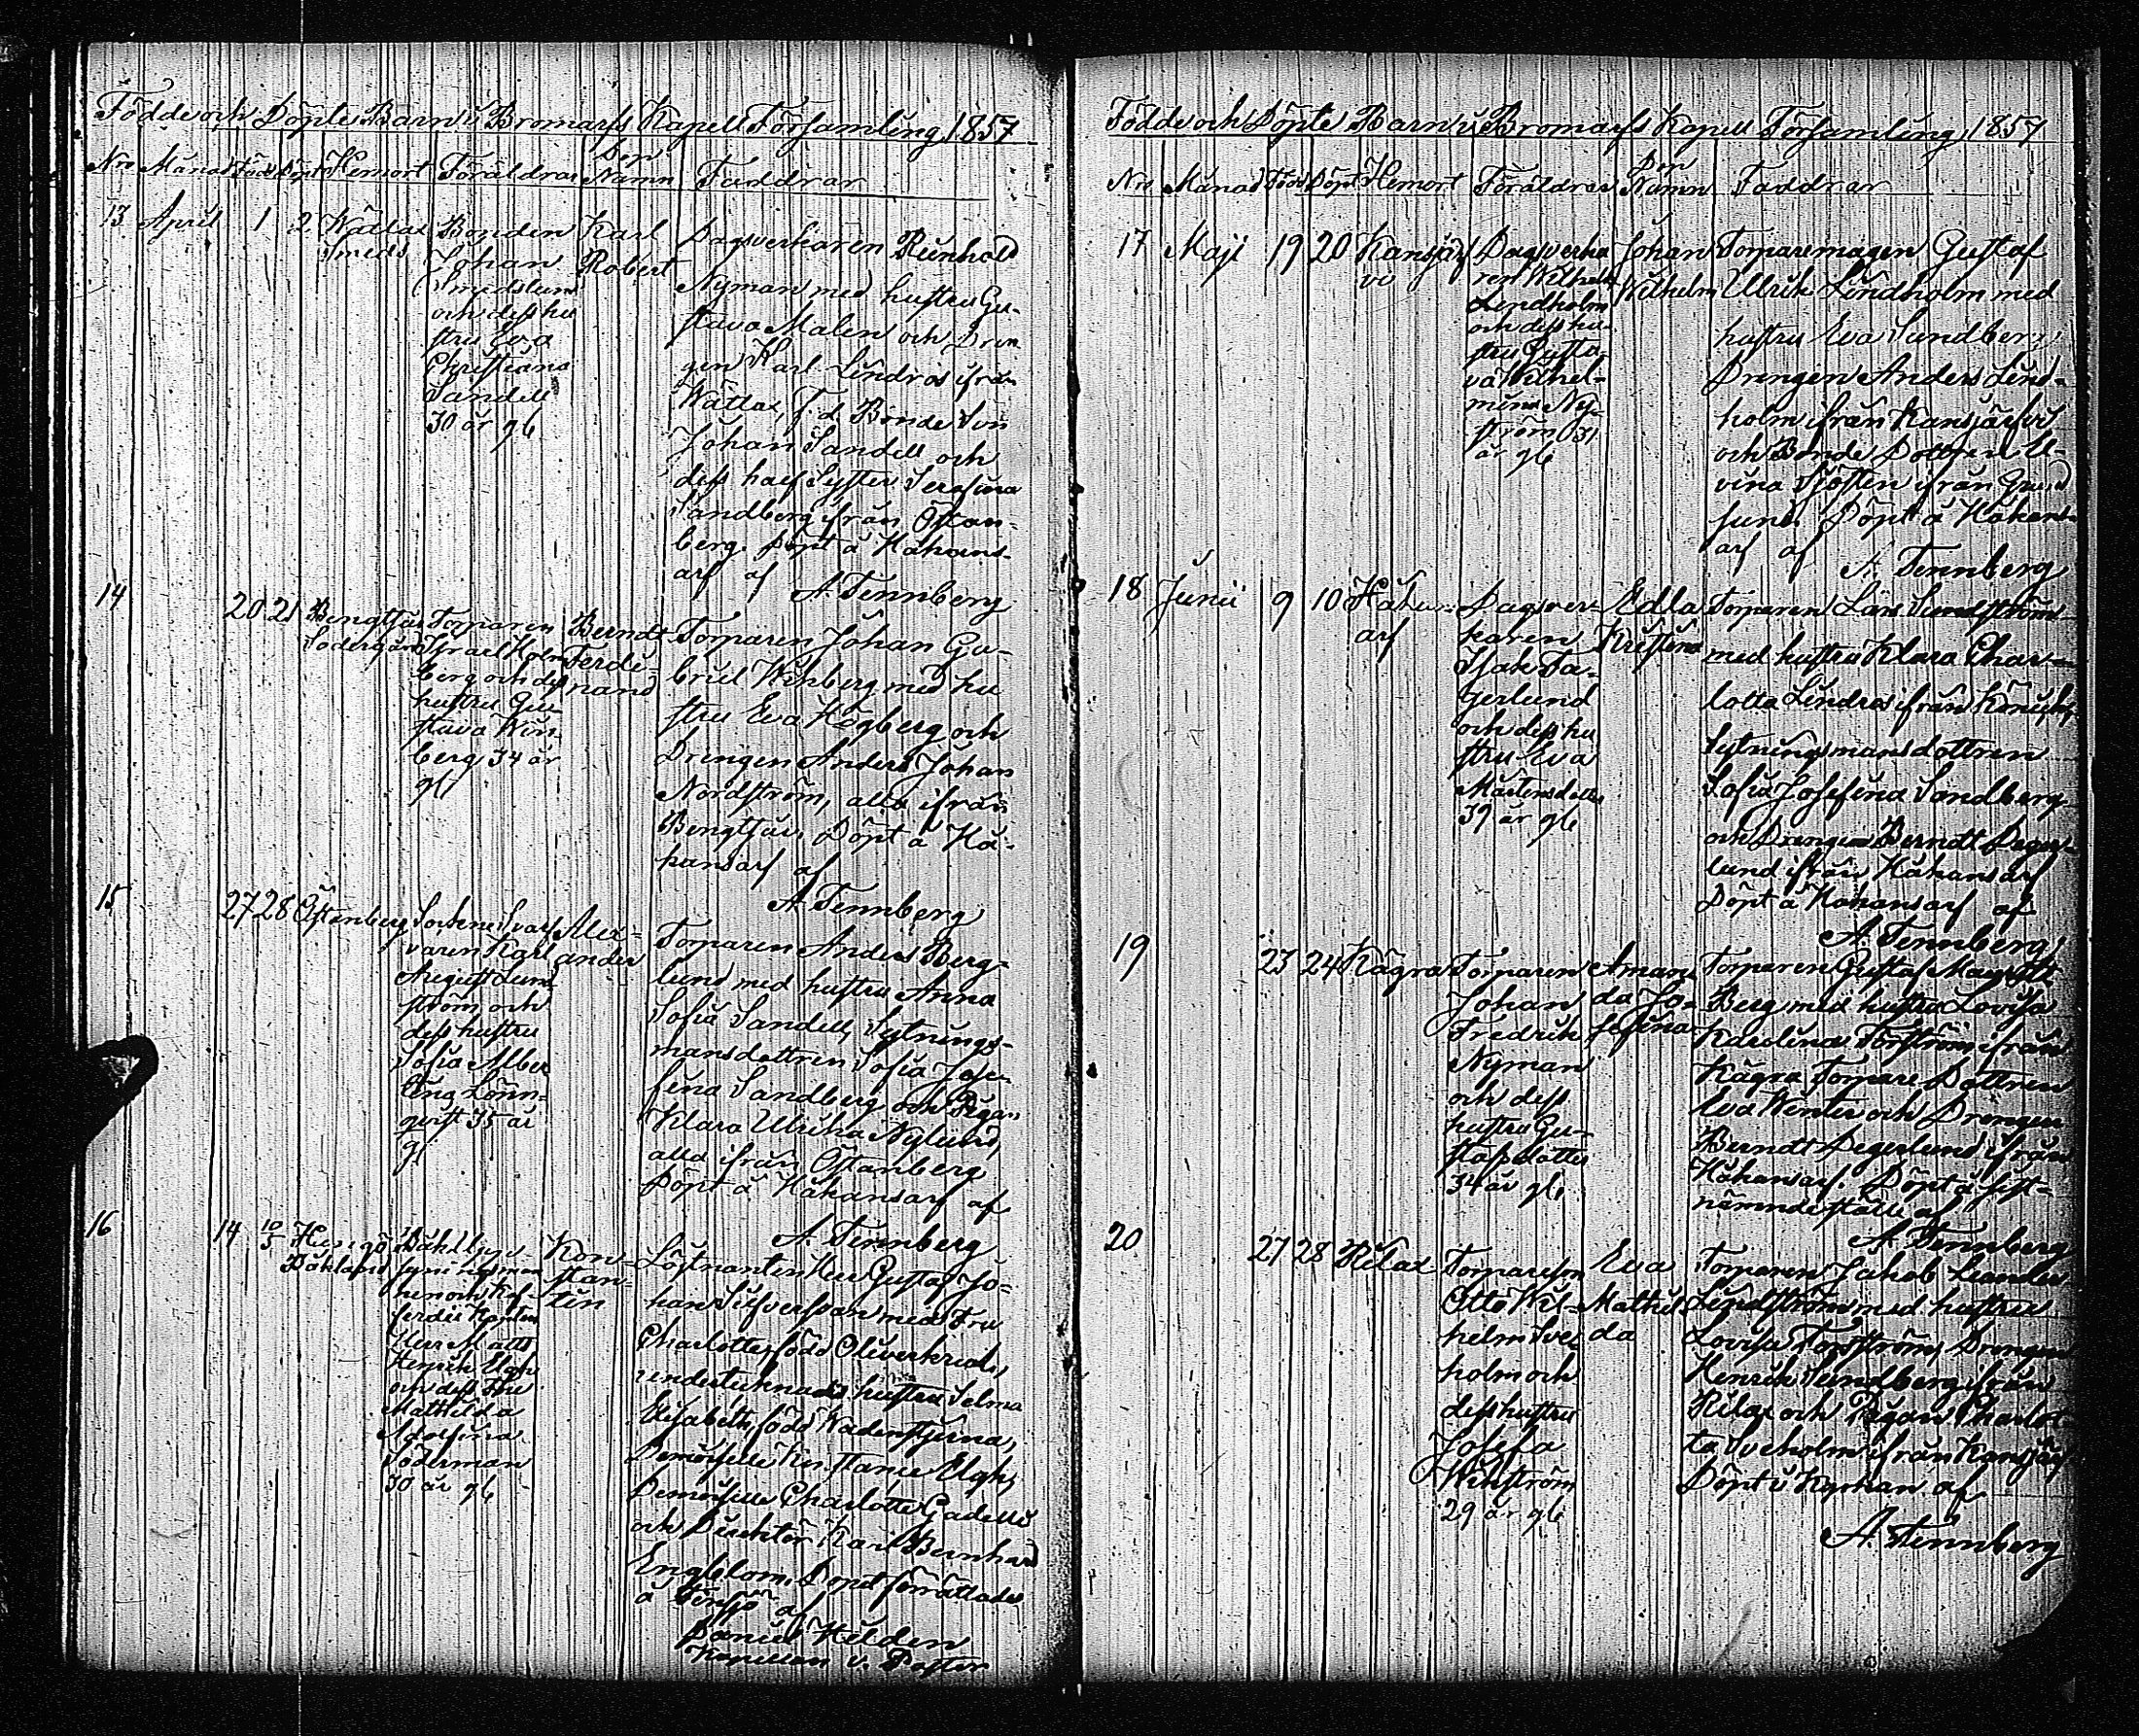 Födde och Döpte Barn i Bromarfs Kapell Församling 1857
Nro Månad Född Döpt Hemort Föräldrar Den Namn Faddrar
13 April 1 2 Wättlax Smeds
Bonden
Johan
Smedslund
och dess hu
stru Eva
Christiana
Sandell
30 år gl
Karl
Robert
Dagsverkaren Reinhold
Nyman med hustru Gu-
stava Malen och Dren
gen Karl Lindros ifrån
Wättlax, f.d. Bonde Son
Johan Sandell och
dess half Syster Serafina
Sandberg ifrån Östan-
berg. Döpt å Håkans-
arf af
A. Tennberg
14 20 21 Bengtsår
Södergård
Torparen
Israel Holm
berg och dess
hustru Gu-
stava Win-
berg 34 år
gl
Berndt
Ferdi-
nand
Torparen Johan Ga-
briel Wikberg med hu
stru Eva Högberg och
Drengen Anders Johan
Nordström, alla ifrån
Bengtsår. Döpt å Hå-
kansarf af
A. Tennberg
15 27 28 Östanberg
Sockne Svar
varen Karl
August Lund
ström och
dess hustru
Sofia Alber
tina Lönn-
qvist 35 år
gl
Alex-
ander
Torparen Anders Berg-
lund med hustru Anna
Sofia Sandell, Sytnings-
mansdottren Sofia Jose-
fina Sandberg och Pigan
Klara Ulrika Nylund,
alla ifrån Östanberg
Döpt å Håkansarf af
A. Tennberg
16 14 10/5
och Kof-
ferdie Kapten
Herr Matts
Henrik Elgh
och dess Fru
Mathilda
Adolfina
Söderman
30 år gl
Kon-
stan-
tin
Löjtnanten Herr Gustaf Jo-
han Silfversvan med Fru
Charlotte, född
undertecknads hustru Selma
Elisabeth, född Wadenstjerna,
Demoiselle Constance Elgh,
Demoiselle Charlotte Gadelli
och Direktör Karl Bernhard
Engblom. Dopet förrättades
å af
Daniel Helden
Kapellan v. Pastor
Födde och Döpte Barn i Bromarfs Kapell Församling 1857
Nro Månad Född Döpt Hemort Föräldrar Den Namn Faddrar
17 Maji 19 20 Kansjärf
vi
Dagsverka
ren Wilhelm
Lindholm
och dess hu-
stru Gusta-
va Wilhel-
mina Ny-
ström 31
år gl
Johan
Wilhelm
Torparemågen Gustaf
Ullrik Lindholm med
hustru Eva Sandberg,
Drengen Anders Lind-
holm ifrån Kansjärfvi
och Bonde Dottren El-
vina Sjösten ifrån
Döpt å Håkans-
arf af
A. Tennberg
18 Junii 9 10 Håkans-
arf
Dagsver-
karen
Isak Fa-
gerlund
och dess hu
stru Eva
Mårtensdotter
39 år gl
Edla
Kristina
Torparen Lars Sundström
med hustru Klara Char-
lotta Lindros ifrån
Sytningsmansdottren
Sofia Josefina Sandberg
och Drengen Berndt Deger-
lund ifrån Håkansarf
Döpt å Håkansarf af
A. Tennberg
19 23 24 Kägra
Torparen
Johan
Fredrik
Nyman
och dess
hustru Gu-
stafsdotter
34 år gl,
Aman
da Jo-
sefina
Torparen Gustaf
Berg med hustru Lovisa
Karolina Forsström ifrån
Kägra Torpare Dottren
Eva Winter och Drengen
Berndt Degerlund ifrån
Håkansarf. Döpt å sist-
nämnde ställe af
A. Tennberg
20 27 28 Rilax
Torpareson
Otto Wil-
helm Sve
holm och
dess hustru
Josefa
Winström
29 år gl
Eva
Mathil
da
Torparen Jakob Leander
Lindström med hustru
Lovisa Forsström, Drengen
Henrik Sundberg ifrån
Rilax och Pigan Charlot-
ta Sveholm ifrån Kansjärf
Döpt i Kyrkan af
A. Tennberg